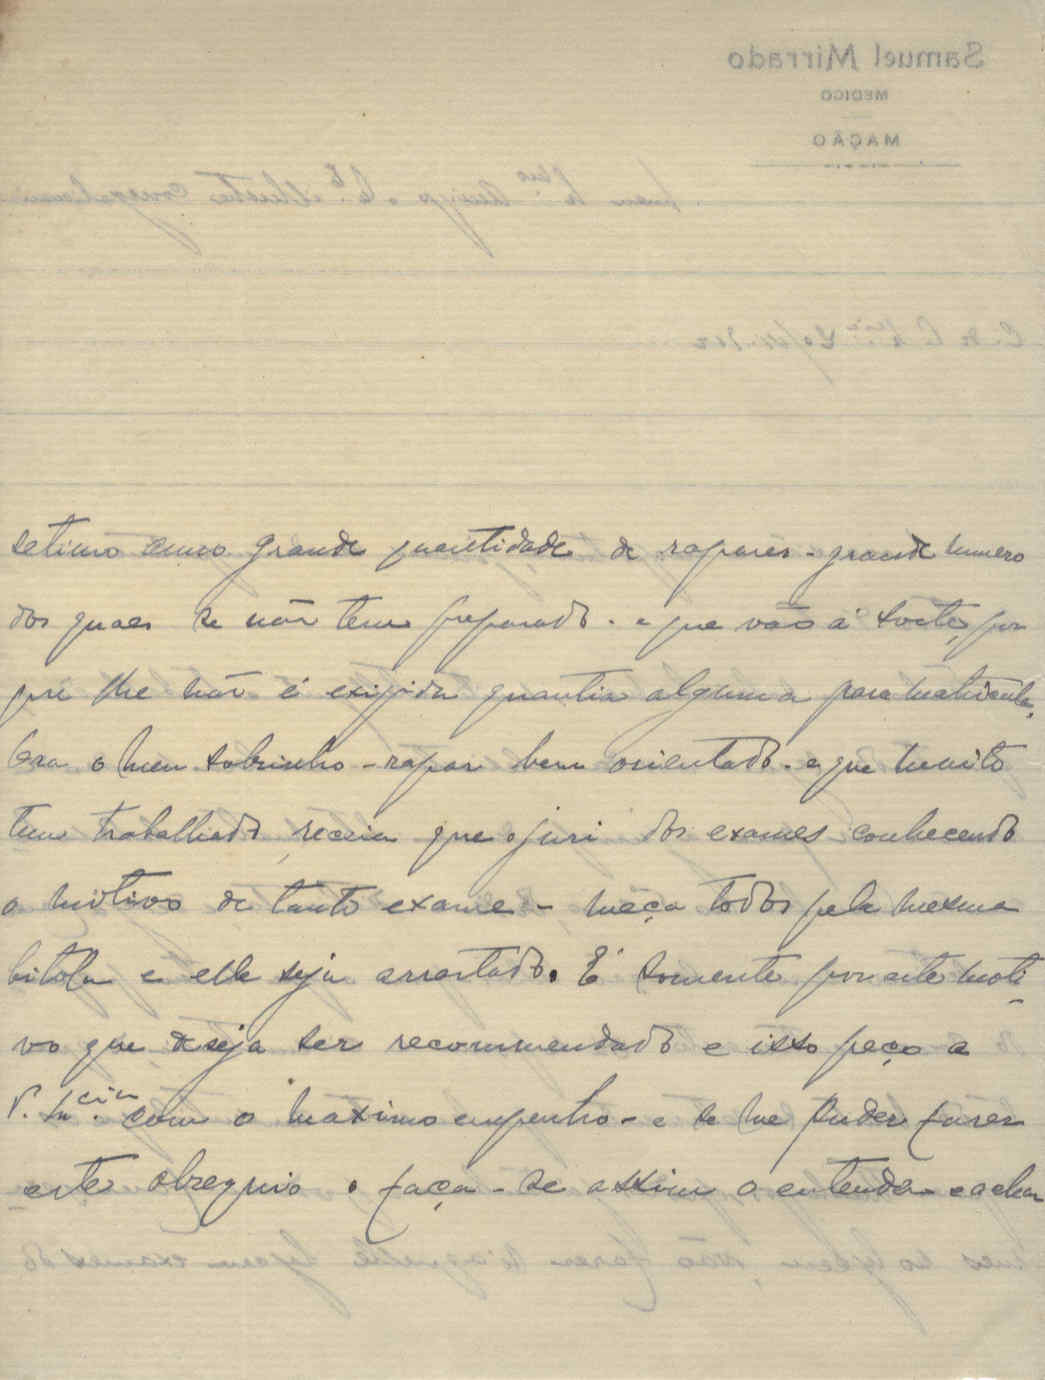 Samuel Mirrado
MEDICO
MAÇÃO
setimo anno grande quantidade de rapazes - grande numero
dos quaes se não tem preparado - e que vão á sorte, por
que lhe não é exigida quantia alguma para matricula.
Ora o meu sobrinho - rapaz bem orientado - e que muito
tem trabalhado, receia que o juri dos exames conhecendo
o motivo de tanto exame - meça todos pela mesma
bitola e elle seja arrastado. E' somente por este moti-
vo que deseja ser recommendado e isso peço a
V. Ex.cia com o maximo empenho - e se me puder fazer
este obzequio o faça - se assim o entender e achar